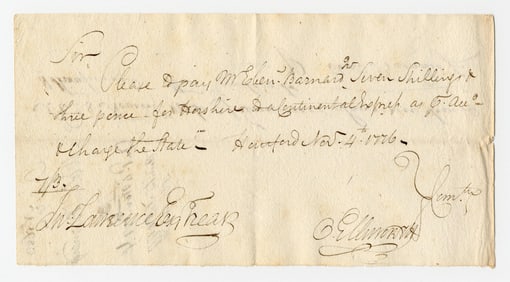 Sir,
Please to pay Mr Eben.r Barnard Jnr Seven Shillings &
three pence for Horshire to a Continental Express as Pr Acco
& Charge the State – Hartford Nov.r 4th 1776 –
7/3.
Comtee
Jno Lawrence Esqr Treasr
O Ellsworth